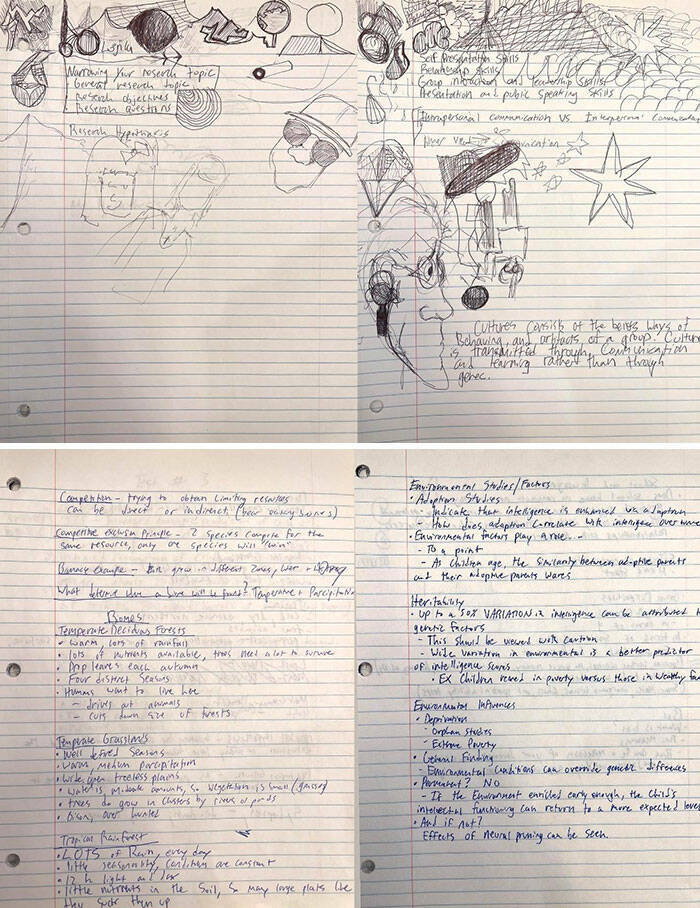 Narrowing Your reserch topic
General reserch topic
Reserch objectives
Reserch questions
Reserch Hypothesis
Self Presentation skills
Relationship skills
Group interaction and leadership skills
Presentation and public speaking skills
Intrapersonal communication VS Interpersonal Communication
Cultures consist of the beliefs ways of
Behaving, and artifacts of a group. Culture
is transmitted through Communication
and learning rather than through
genec.
Competition - trying to obtain limiting resources
can be direct or indirect
Competitive exclusion Principle - 2 species compete for the
same resource, only one species will "win"
example - grow in different Zones,
What determine where a biome will be found? Temperature + Parcipitation
Biomes
Temperate Decidous Forests
• Warm, lots of rainfall
• lots of nutrients available, trees need a lot to survive
• Drop leaves each autumn
• Four distinct Seasons
• Humans want to live here
- drives out animals
- cuts down size of forests
Temperate Grasslands
• Well defined Seasons
• Warm, medium parcipitation
• Wide open treeless plains
• Water is moderate amounts, so Vegetation is small (grasses)
• trees do grow in clusters by rivers or ponds
• Bison, over hunted
Tropical Rainforest
• LOTS of Rain, every day
• little seasonality, Conditions are constant
• 12 h light and dark
• little nutrients in the Soil, So many large plants
they suck them up
Environmental Studies/Factors
• Adoption Studies
- Indicate that intelligence is enhanced via adoption
- How does adoption Correlate with intelligence over time
• Environmental factors play a role...
- To a point
- As Children age, the similarity between adoptive parents
and their adoptive parents Wares
Heritability
• Up to a 50% VARIATION in intelligence can be attributed to
genetic factors
- This should be viewed with caution
- Wide variation in environmental is a better predictor
of intelligence scores
• EX Children reared in poverty versus those in Wealthy
Environmental Influences
• Deprivation
- Orphan Studies
- Extreme Poverty
• General Finding
- Environmental Conditions can override genetic differences
• Permanent? NO
- If the Environment enriched early enough, the Child's
intellectual functioning can return to a more expected level
• And if not?
Effects of neural pruning can be seen